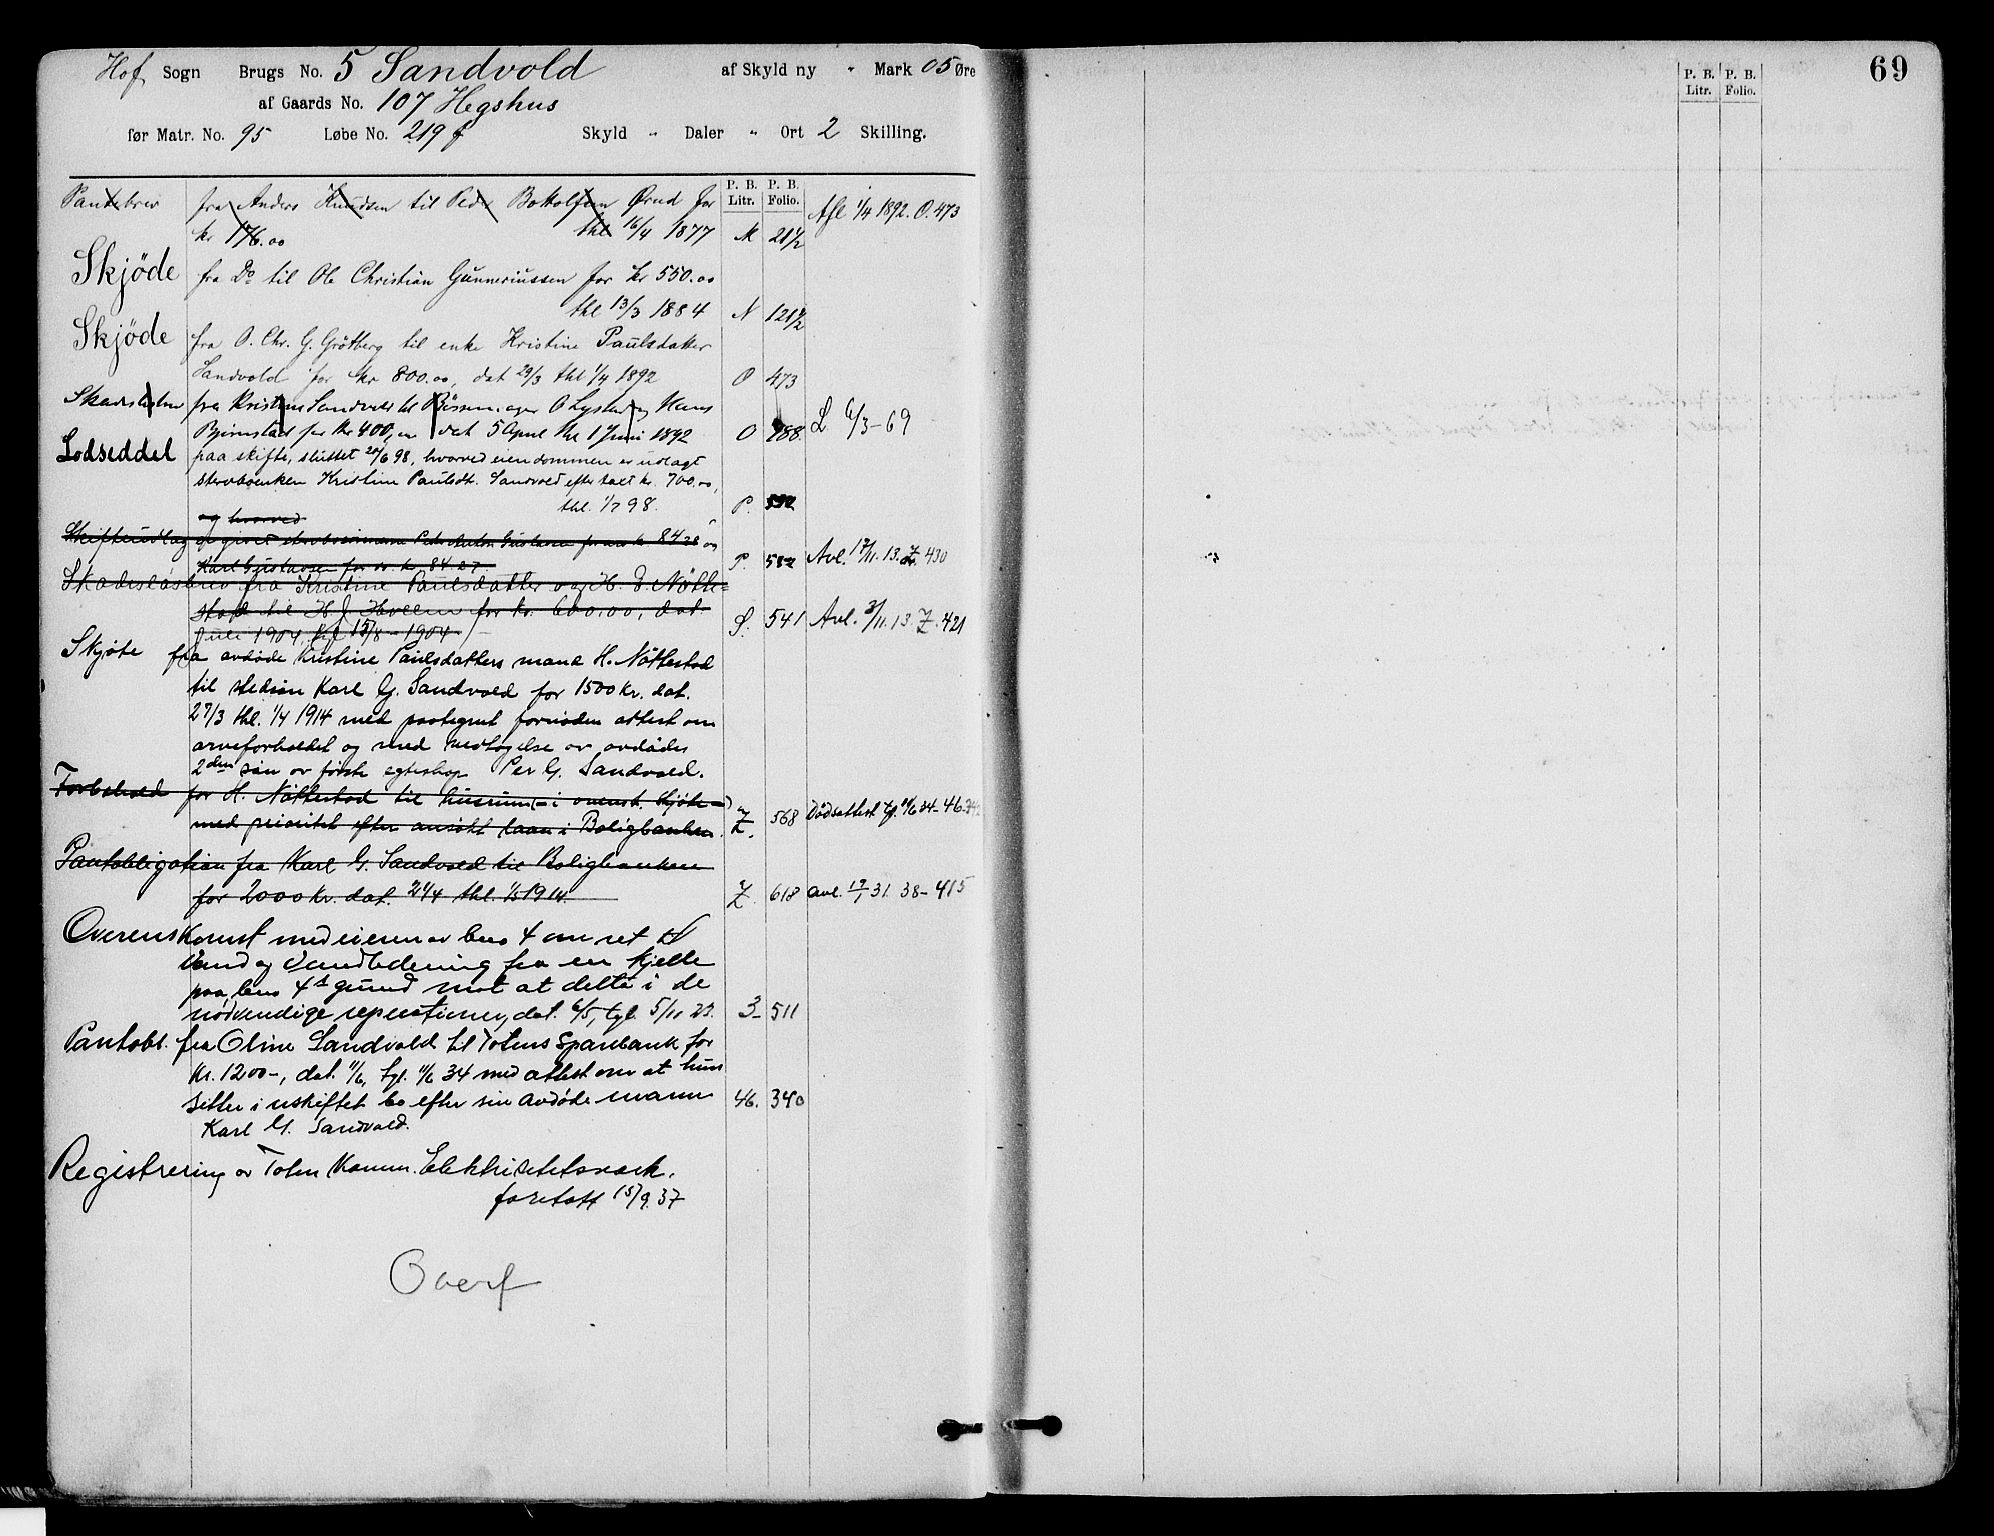 Hof Sogn Brugs No. 5 Sandvold af Skyld ny " Mark 05 Øre
af Gaards No. 107 Hegshus
før Matr. No. 95 Løbe No. 219 f Skyld " Daler " Ort 2 Skilling.
P. B. Litr. P. B. Folio.
Pantebrev fra Anders Knudsen til Peder Ørud for Afl 1/4 1892. O. 473
kr 176.00 thl 16/4 1877 M 211/2
Skjöde fra Do til Ole Christian Gunneriussen for kr 550.00
thl 13/3 1884 N 121/2
Skjöde fra O. Chr. G. Grötberg til enke Kristine Paulsdatter
Sandvold for kr 800.00, dat 29/3 thl 1/4 1892 O 473
fra Kristine Sandvold til O Lysten og Hans
Björnstad for kr 400,00 dat 5 April thl 1 Juni 1892 O 788 L 6/3-69
Lodseddel paa skifte, sluttet 20/6 98, hvorved eiendommen er udlagt
stervboenken Kristine Paulsdt. Sandvold efter taxt kr. 700.00,
thl. 1/7 98. P. 592
og hvorved
Skifteudlæg Gustavsen for arv kr 84 28 og
Karl Gustavsen for do. kr. 84.27. P. 592 Avl. 17/11.13. Z 430
Skadeslösbrev fra Kristine Paulsdatter og H. Nötte-
stad til H J Hoveen for kr. 600.00, dat.
Juli 1904 tgl 15/8 1904 S. 541 Avl. 3/11.13 Z.421
Skjöte fra avdöde Kristine Paulsdatters mand H. Nöttestad
til stedsön Karl G. Sandvold for 1500 kr. dat.
27/3 thl. 1/4 1914 med paategnet fornöden attest om
arveforholdet og med vedtagelse av avdödes
2den sön av förste egteskap Per G. Sandvold.
Forbehold for H. Nöttestad til husrum (- i ovenst. skjöte -)
med prioritet efter ansökt laan i Boligbanken. Z. 568 Dödsattest tgl. 11/6 34-46.340
Pantobligation fra Karl G. Sandvold til Boligbanken
for 2000 kr. dat. 21/4 thl. 1/5 1914. Z. 618 avl. 19/1 31. 38-415
Overenskomst med eieren av bno 4 om ret til
Vand og Vandledning fra en kjelde
paa bno 4s grund mot at delta i de
nödvendige reperationer, dat. 6/5, tgl. 5/11 23. 3- 511
Pantobl. fra Oline Sandvold til Totens Sparebank for
kr. 1200-, dat. 11/6, tgl. 11/6 34 med attest om at hun
sitter i uskiftet bo efter sin avdöde mann 46. 340
Karl G. Sandvold.
Registrering av Toten Komm. Elektrisitetsverk.
foretatt 15/9.37
Overf
P. B. Litr. P. B. Folio.
69